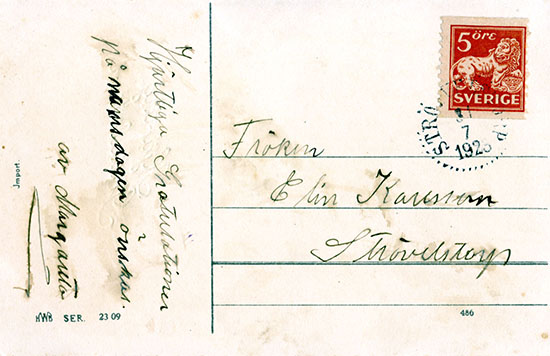 Hjertliga Gratulationer
på namnsdagen önskas.
av Margareta
Import.
HWB SER. 2309
5 ÖRE
SVERIGE
7
192
Fröken
Elin Karlsson
Strövelstorp
486